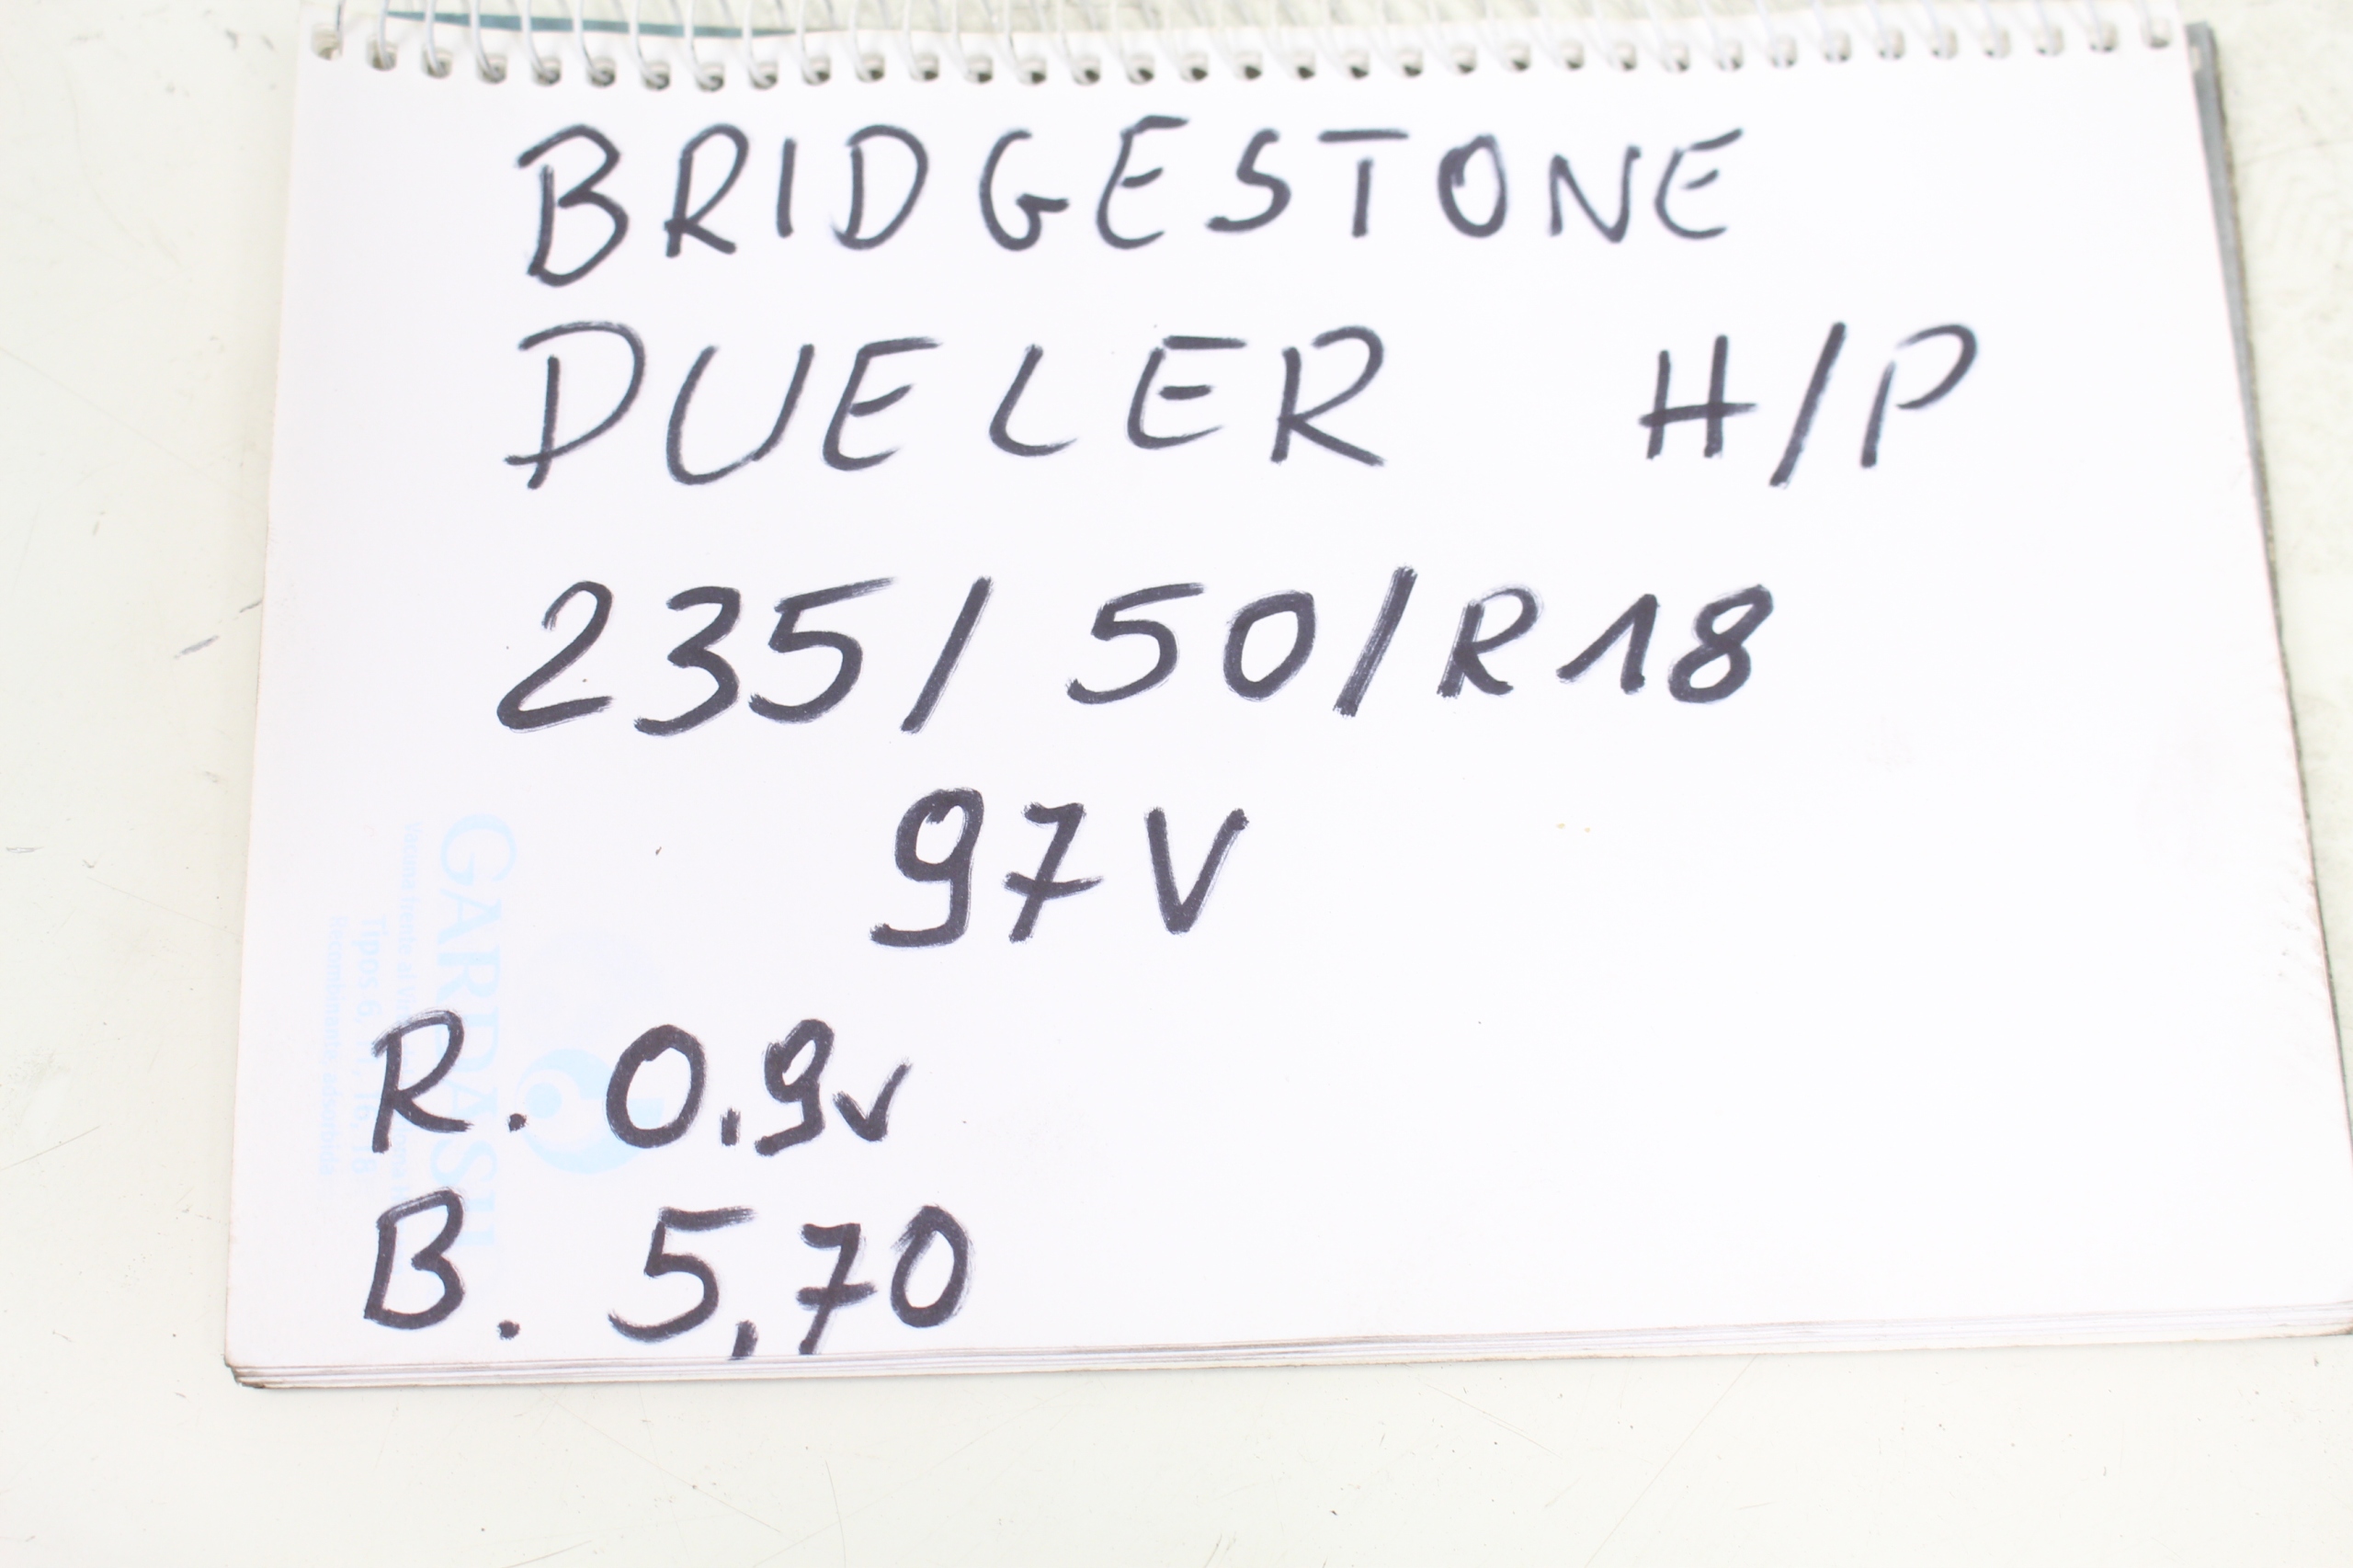 BRIDGESTONE
DUELER H/P
235/ 50/R18
97V
R. 0.9v
B. 5,70
GARDASIL
Tipos 6,